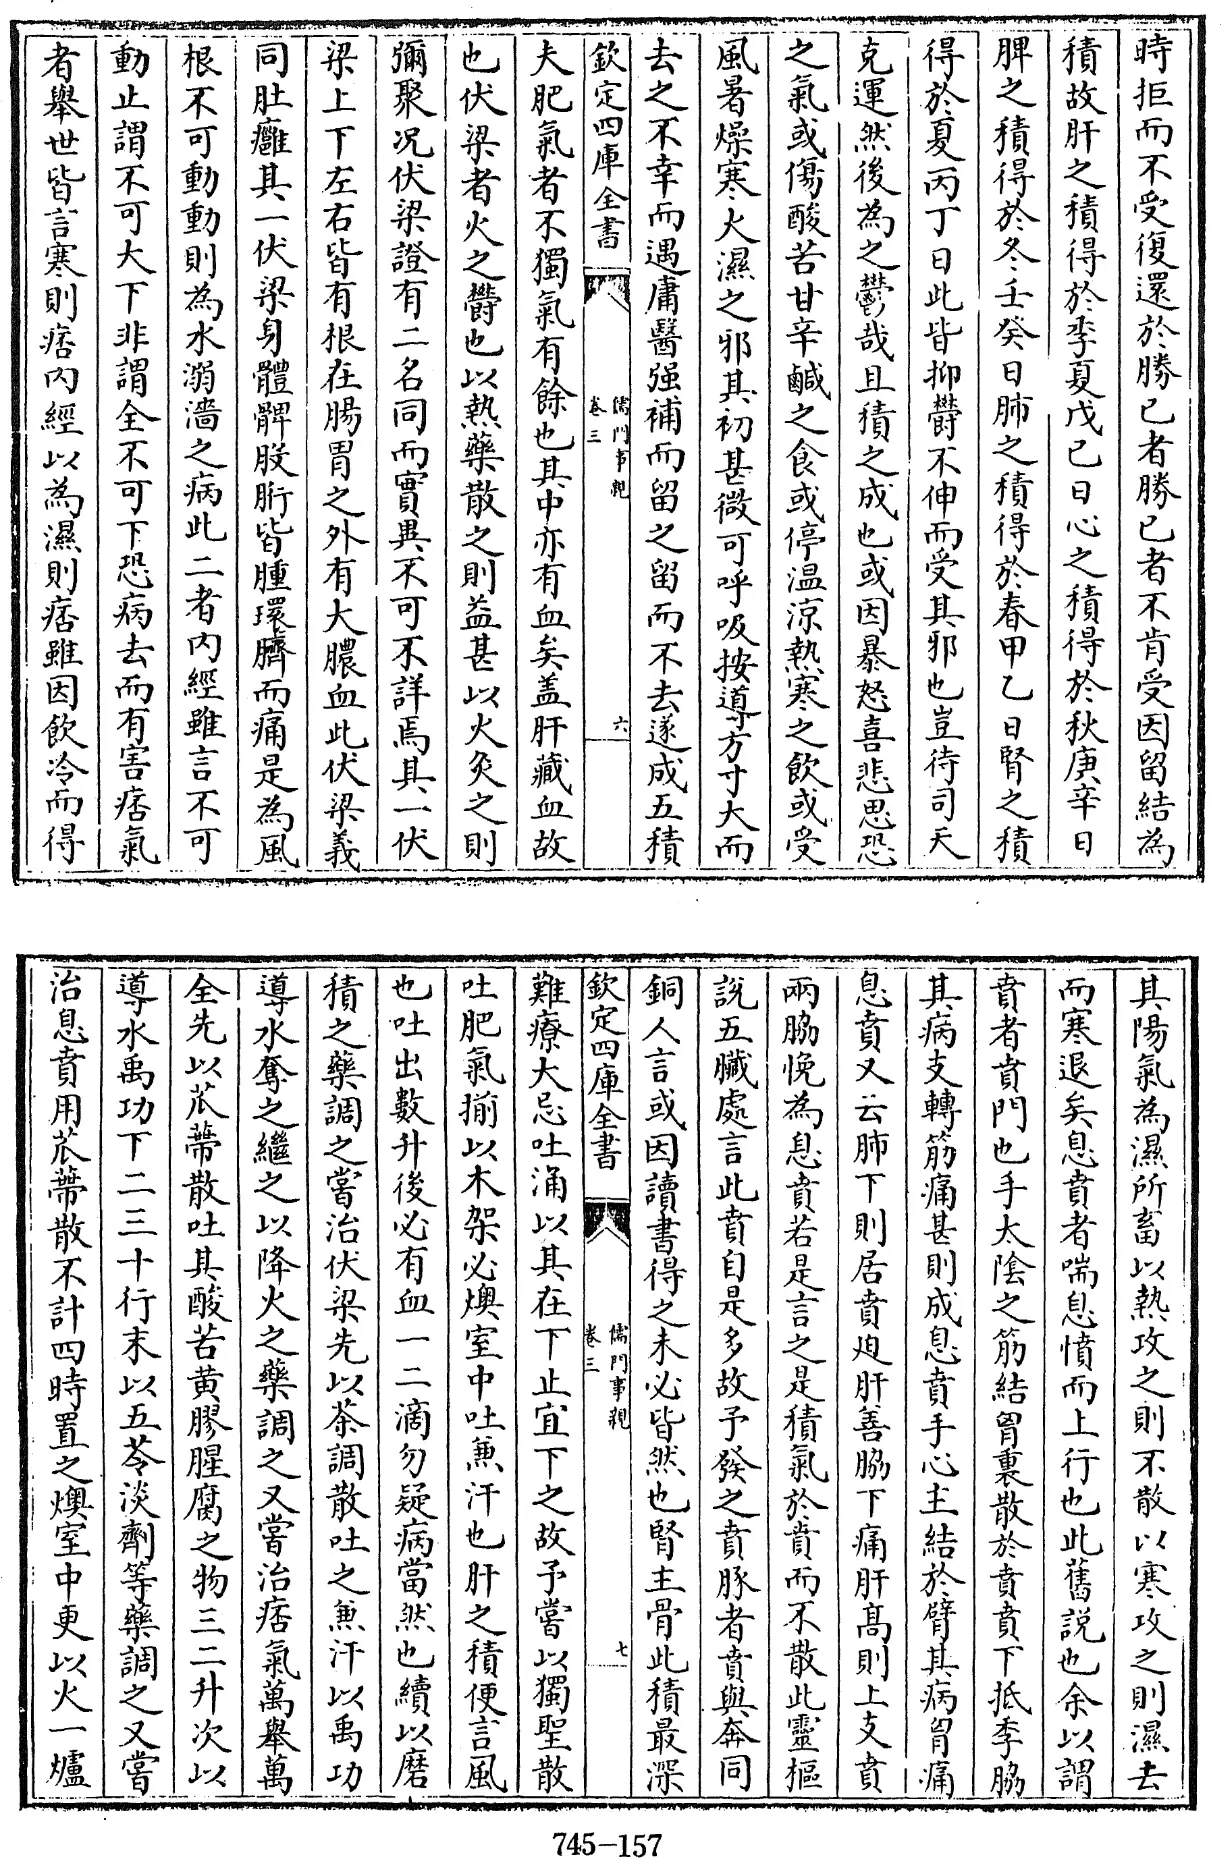 時拒而不受復還於勝已者勝已者不肯受因留結為
積故肝之積得於季夏戊已日心之積得於秋庚辛日
脾之積得於冬壬癸日肺之積得於春甲乙日腎之積
得於夏丙丁日此皆抑欝不伸而受其邪也豈待司天
克運然後為之鬱哉且積之成也或因暴怒喜悲思恐
之氣或傷酸苦甘辛鹹之食或停温涼熱寒之飲或受
風暑燥寒火濕之邪其初甚微可呼吸按導方寸大而
去之不幸而遇庸醫强補而留之留而不去遂成五積
欽定四庫全書
儒門事親
卷三
六
夫肥氣者不獨氣有餘也其中亦有血矣盖肝藏血故
也伏梁者火之欝也以熱藥散之則益甚以火灸之則
彌聚况伏梁證有二名同而實異不可不詳焉其一伏
梁上下左右皆有根在腸胃之外有大膿血此伏梁義
同肚癰其一伏梁身體髀股胻皆腫環臍而痛是為風
根不可動動則為水溺濇之病此二者内經雖言不可
動止謂不可大下非謂全不可下恐病去而有害痞氣
者舉世皆言寒則痞内經以為濕則痞雖因飲冷而得
其陽氣為濕所畜以熱攻之則不散以寒攻之則濕去
而寒退矣息賁者喘息憤而上行也此舊説也余以謂
賁者賁門也手太陰之筋結胷裏散於賁賁下抵季脇
其病支轉筋痛甚則成息賁手心主結於臂其病胷痛
息賁又云肺下則居賁迫肝善脇下痛肝髙則上支賁
兩脇悗為息賁若是言之是積氣於賁而不散此靈樞
説五臟處言此賁自是多故予發之賁豚者賁與奔同
銅人言或因讀書得之未必皆然也腎主骨此積最深
欽定四庫全書
儒門事親
卷三
七
難療大忌吐涌以其在下止宜下之故予嘗以獨聖散
吐肥氣揃以木架必燠室中吐兼汗也肝之積便言風
也吐出數升後必有血一二滴勿疑病當然也續以磨
積之藥調之嘗治伏梁先以茶調散吐之兼汗以禹功
導水奪之繼之以降火之藥調之又嘗治痞氣萬舉萬
全先以苽蔕散吐其酸苦黄膠腥腐之物三二升次以
導水禹功下二三十行末以五苓淡劑等藥調之又嘗
治息賁用苽蔕散不計四時置之燠室中更以火一爐
745-157